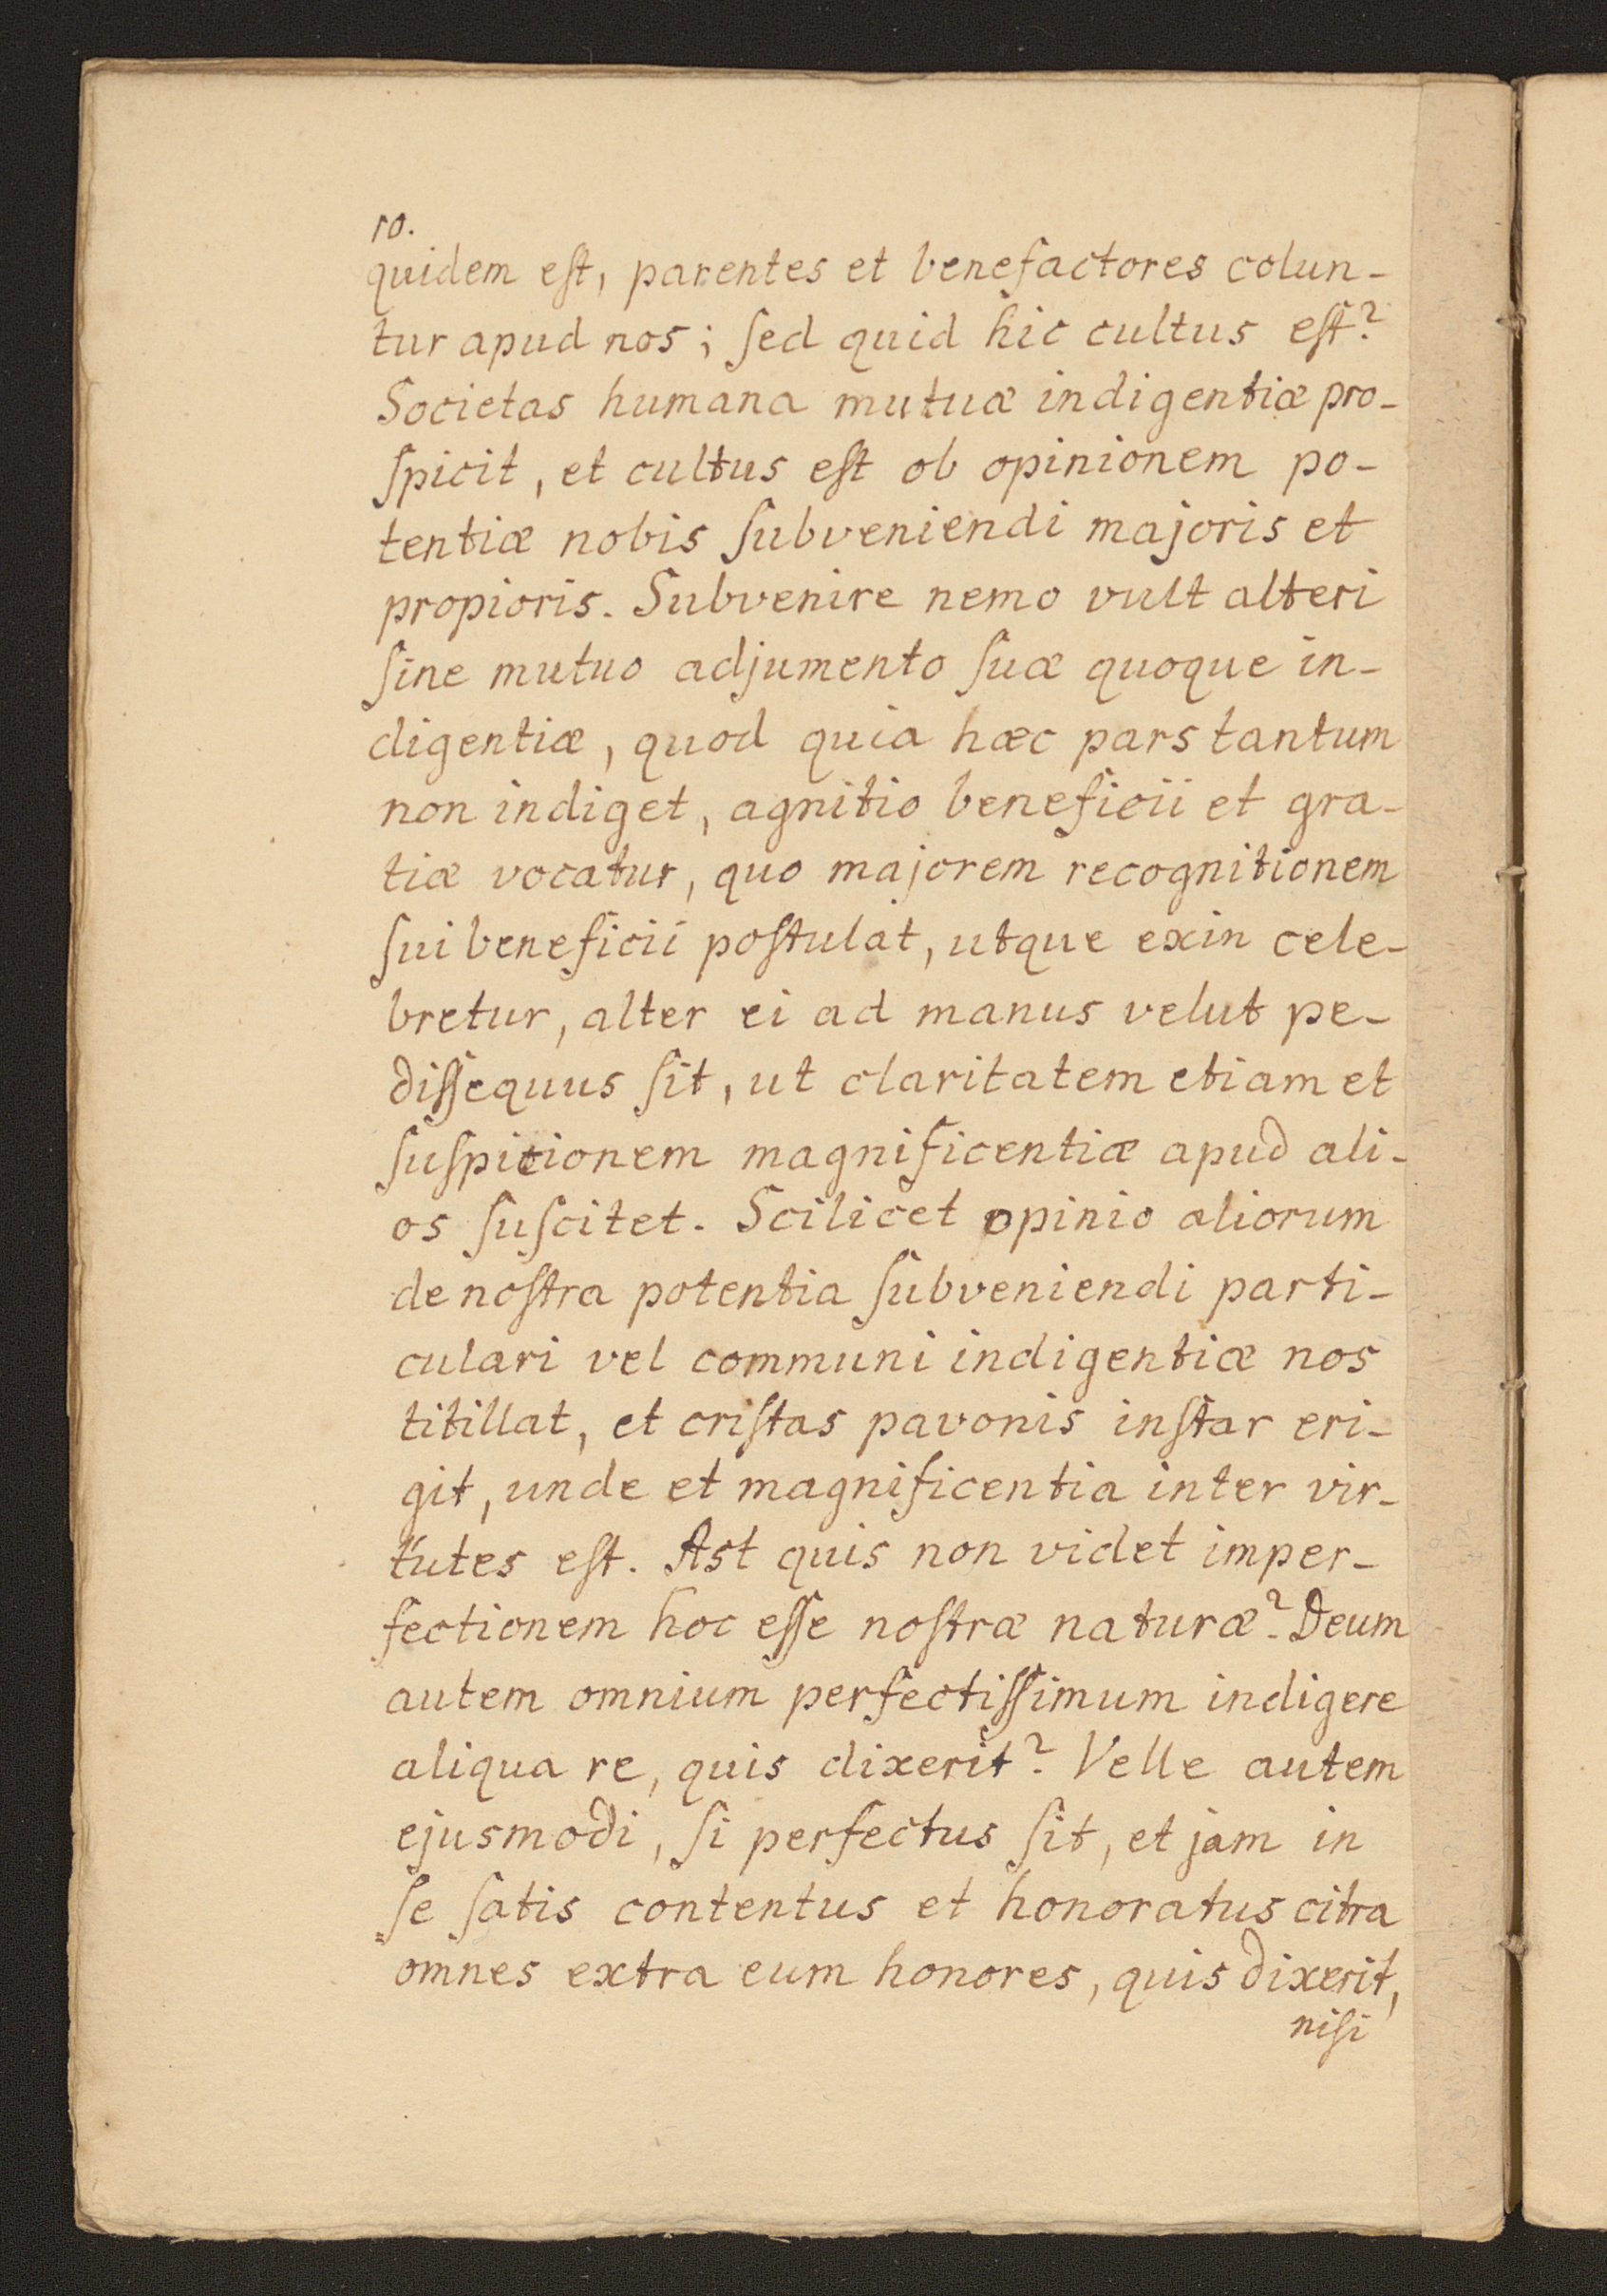 10.
quidem eſt, parentes et benefactores colun-
tur apud nos; ſed quid hic cultus eſt?
Societas humana mutuæ indigentiæ pro-
ſpicit, et cultus eſt ob opinionem po-
tentiæ nobis ſubveniendi majoris et
propioris. Subvenire nemo vult alteri
ſine mutuo adjumento ſuæ quoque in-
digentiæ, quod quia hæc pars tantum
non indiget, agnitio beneficii et gra-
tiæ vocatur, quo majorem recognitionem
ſui beneficii poſtulat, utque exin cele-
bretur, alter ei ad manus velut pe-
diſſequus ſit, ut claritatem etiam et
ſuſpicionem magnificentiæ apud ali-
os ſuſcitet. Scilicet opinio aliorum
de noſtra potentia ſubveniendi parti-
culari vel communi indigentiæ nos
titillat, et criſtas pavonis inſtar eri-
git, unde et magnificentia inter vir-
tutes eſt. Ast quis non videt imper-
fectionem hoc eſſe noſtræ naturæ? Deum
autem omnium perfectiſſimum indigere
aliqua re, quis dixerit? Velle autem
ejusmodi, ſi perfectus ſit, et jam in
ſe ſatis contentus et honoratus citra
omnes extra eum honores, quis dixerit,
niſi